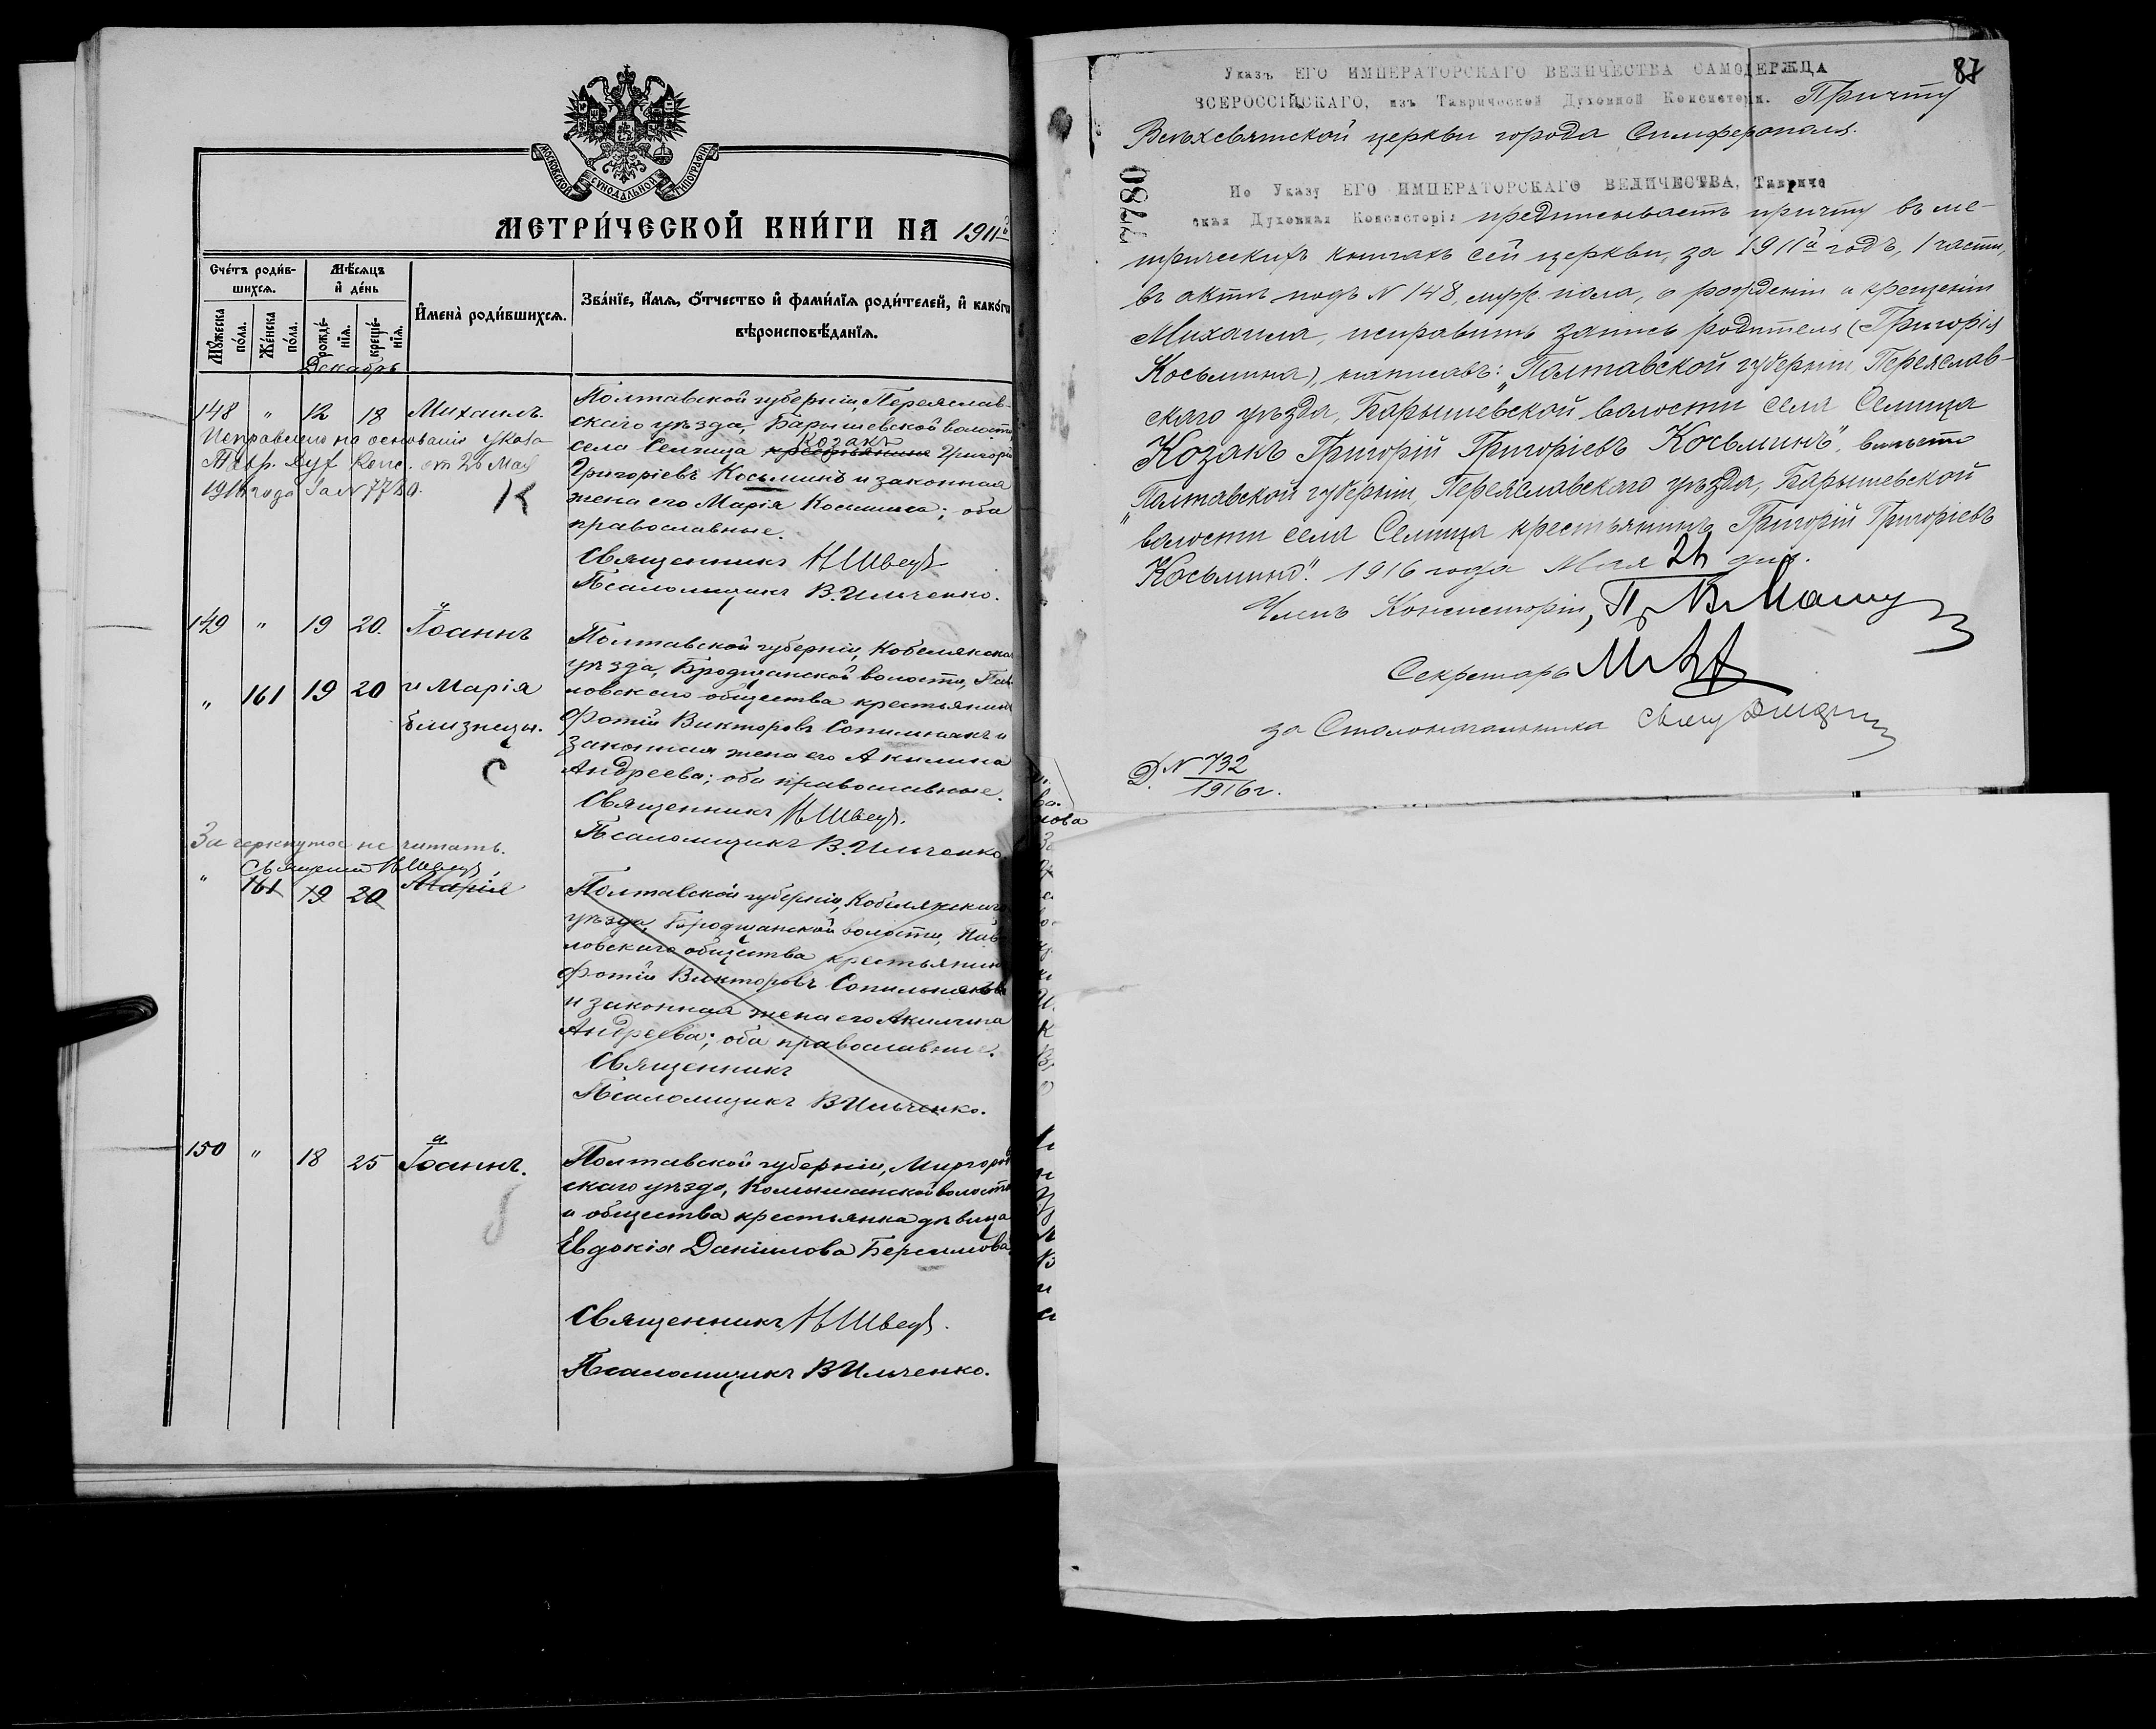 МОСКОВСКОЙ СѴНОДАЛЬНОЙ ТИПОГРАФІИ
МЕТРИ́ЧЕСКОЙ КНИ́ГИ НА 1911й
Сче́тъ роди́в-
шихся.
Мѣ́сяцъ
и де́нь
Мꙋжеска по́ла.
Же́нска по́ла.
рожде́-
нія.
креще́-
нія.
Имена̀ роди́вшихся.
Зва́ніе, и́мя, о́тчество и фами́лія роди́телей, и како́гѡ
вѣроисповѣ́данія.
Декабрь
148 " 12 18 Михаилъ.
Исправлено на основаніи указа
Тавр. Дух. Конс. от 26 Мая
1916 года за N 7780.
К
Полтавской губерніи, Переяслав-
скаго уѣзда, Барышевской волости
Козакъ
села Селища крестьянинъ Григорій
Григоріевъ Косьминъ и законная
жена его Марія Косьмина; оба
православные.
Священникъ Н Швецъ
Псаломщикъ В. Ильченко.
149 " 19 20. Іоаннъ
" 161 19 20 и Марія
близнецы.
С
Полтавской губерніи, Кобелякска
уѣзда, Бродщанской волости, Пав
ловскаго общества крестьянинъ
Фотій Викторовъ Сопильнякъ и
законная жена его Акилина
Андреева; оба православные.
Священникъ Н Швецъ.
Псаломщикъ В. Ильченко
Зачеркнутое не читать.
Священник Н Швецъ,
" 161 19 20 Марія
Полтавской губерніи, Кобелякскаго
уѣзда, Бродщанской волости, Пав
ловскаго общества крестьянин
Фотій Викторовъ Сопильняков
и законная жена его Акилина
Андреева; оба православные.
Священникъ
Псаломщикъ В Ильченко.
150 " 18 25 Іоаннъ.
Полтавской губерніи, Миргород
скаго уѣзда, Комышанской волости
и общества крестьянка дѣвица
Евдокія Даніилова Берешлова
Священникъ Н Швецъ.
Псаломщикъ В Ильченко.
87
Указъ ЕГО ИМПЕРАТОРСКАГО ВЕЛИЧЕСТВА САМОДЕРЖЦА
ВСЕРОССІЙСКАГО, изъ Таврической Духовной Консисторіи. Причту
Всѣхсвятской церкви города Симферополя.
7780
По Указу ЕГО ИМПЕРАТОРСКАГО ВЕЛИЧЕСТВА, Тавриче
ская Духовная Консисторія предписываетъ причту въ ме-
трическихъ книгахъ сей церкви, за 1911й годъ, I части,
въ актѣ подъ N 148, муж. пола, о рожденіи и крещеніи
Михаила, исправить запись родителя (Григорія
Косьмина), написавъ: „Полтавской губерніи Переяслав-
скаго уѣзда, Барышевской волости села Селища
Козакъ Григорій Григоріевъ Косьминъ", вмѣсто
„Полтавской губерніи, Переяславскаго уѣзда, Барышевской
волости села Селища крестьянинъ Григорій Григоріевъ
Косьминъ". 1916 года Мая 26 дня.
Членъ Консисторіи,
Секретарь
за Столоначальника
Д. N 732
1916 г.